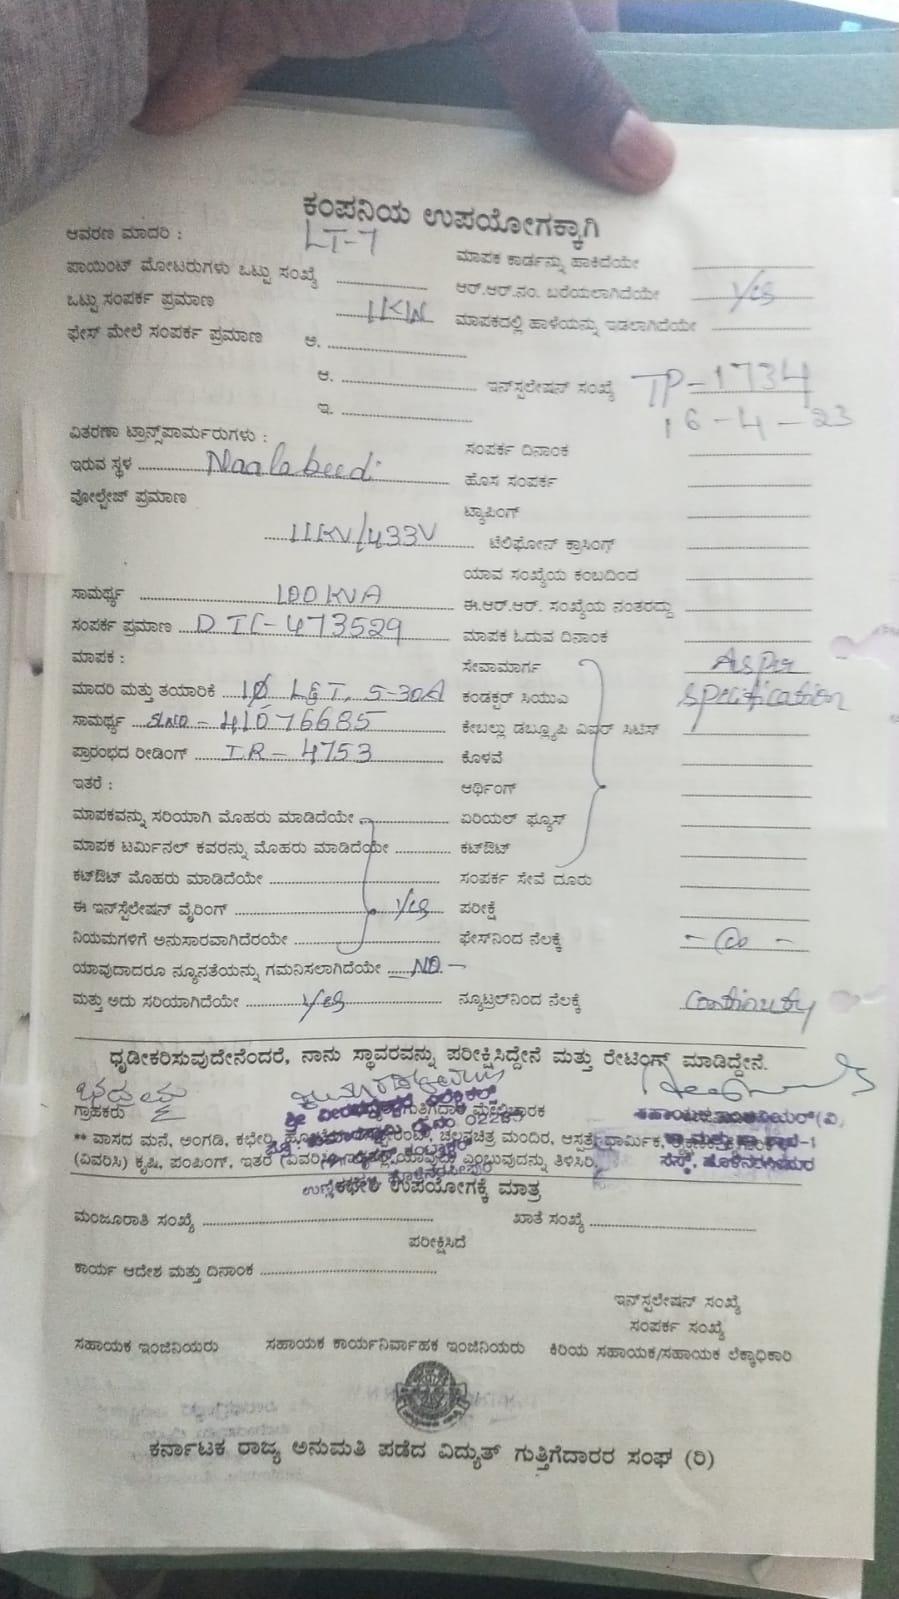 ಕಂಪನಿಯ ಉಪಯೋಗಕ್ಕಾಗಿ
ಆವರಣ ಮಾದರಿ : LT-7
ಮಾಪಕ ಕಾರ್ಡನ್ನು ಹಾಕಿದೆಯೇ
ಪಾಯಿಂಟ್ ಮೋಟರುಗಳು ಒಟ್ಟು ಸಂಖ್ಯೆ
ಆರ್.ಆರ್.ನಂ. ಬರೆಯಲಾಗಿದೆಯೇ Yes
ಒಟ್ಟು ಸಂಪರ್ಕ ಪ್ರಮಾಣ 1KW
ಮಾಪಕದಲ್ಲಿ ಹಾಳೆಯನ್ನು ಇಡಲಾಗಿದೆಯೇ
ಫೇಸ್ ಮೇಲೆ ಸಂಪರ್ಕ ಪ್ರಮಾಣ ಅ.
ಆ. ಇನ್‌ಸ್ಟಲೇಷನ್ ಸಂಖ್ಯೆ TP-1734
ಇ. 16-4-23
ವಿತರಣಾ ಟ್ರಾನ್ಸ್‌ಫಾರ್ಮರುಗಳು :
ಸಂಪರ್ಕ ದಿನಾಂಕ
ಇರುವ ಸ್ಥಳ Naalabeedi
ಹೊಸ ಸಂಪರ್ಕ
ವೋಲ್ಟೇಜ್ ಪ್ರಮಾಣ
ಟ್ಯಾಪಿಂಗ್
11KV/433V ಟೆಲಿಫೋನ್ ಕ್ರಾಸಿಂಗ್
ಯಾವ ಸಂಖ್ಯೆಯ ಕಂಬದಿಂದ
ಸಾಮರ್ಥ್ಯ 100KVA
ಈ.ಆರ್.ಆರ್. ಸಂಖ್ಯೆಯ ನಂತರದ್ದು
ಸಂಪರ್ಕ ಪ್ರಮಾಣ DTC-473529
ಮಾಪಕ ಓದುವ ದಿನಾಂಕ
ಮಾಪಕ :
ಸೇವಾಮಾರ್ಗ As per
ಮಾದರಿ ಮತ್ತು ತಯಾರಿಕೆ 1Ø L&T, 5-30A
ಕಂಡಕ್ಟರ್ ಸಿಯುಎ specification
ಸಾಮರ್ಥ್ಯ SlNO-41076685
ಕೇಬಲ್ಲು ಡಬ್ಲ್ಯೂಪಿ ವಿಪರ್ ಸಿಟಿಸ್
ಪ್ರಾರಂಭದ ರೀಡಿಂಗ್ IR-4753
ಕೊಳವೆ
ಇತರೆ :
ಆರ್ಥಿಂಗ್
ಮಾಪಕವನ್ನು ಸರಿಯಾಗಿ ಮೊಹರು ಮಾಡಿದೆಯೇ
ಏರಿಯಲ್ ಫ್ಯೂಸ್
ಮಾಪಕ ಟರ್ಮಿನಲ್ ಕವರನ್ನು ಮೊಹರು ಮಾಡಿದೆಯೇ
ಕಟ್‌ಔಟ್
ಕಟ್‌ಔಟ್ ಮೊಹರು ಮಾಡಿದೆಯೇ
ಸಂಪರ್ಕ ಸೇವೆ ದೂರು
ಈ ಇನ್‌ಸ್ಟೆಲೇಷನ್ ವೈರಿಂಗ್ Yes
ಪರೀಕ್ಷೆ
ನಿಯಮಗಳಿಗೆ ಅನುಸಾರವಾಗಿದೆರಯೇ
ಫೇಸ್‌ನಿಂದ ನೆಲಕ್ಕೆ
ಯಾವುದಾದರೂ ನ್ಯೂನತೆಯನ್ನು ಗಮನಿಸಲಾಗಿದೆಯೇ NO.-
ಮತ್ತು ಅದು ಸರಿಯಾಗಿದೆಯೇ Yes
ನ್ಯೂಟ್ರಲ್‌ನಿಂದ ನೆಲಕ್ಕೆ Continuty
ಧೃಡೀಕರಿಸುವುದೇನೆಂದರೆ, ನಾನು ಸ್ಥಾವರವನ್ನು ಪರೀಕ್ಷಿಸಿದ್ದೇನೆ ಮತ್ತು ರೇಟಿಂಗ್ ಮಾಡಿದ್ದೇನೆ.
ಗ್ರಾಹಕರು ಗುತ್ತಿಗೆದಾರ ಮೇಲ್ವಿಚಾರಕ
** ವಾಸದ ಮನೆ, ಅಂಗಡಿ, ಕಛೇರಿ, ಚಲನಚಿತ್ರ ಮಂದಿರ, ಆಸ್ಪತ್ರೆ, ಧಾರ್ಮಿಕ,
(ವಿವರಿಸಿ) ಕೃಷಿ, ಪಂಪಿಂಗ್, ಇತರೆ (ವಿವರಿಸಿ) ಎಂಬುವುದನ್ನು ತಿಳಿಸಿರಿ.
ಕಛೇರಿ ಉಪಯೋಗಕ್ಕೆ ಮಾತ್ರ
ಮಂಜೂರಾತಿ ಸಂಖ್ಯೆ ಖಾತೆ ಸಂಖ್ಯೆ
ಪರೀಕ್ಷಿಸಿದೆ
ಕಾರ್ಯ ಆದೇಶ ಮತ್ತು ದಿನಾಂಕ
ಇನ್‌ಸ್ಟಲೇಷನ್ ಸಂಖ್ಯೆ
ಸಂಪರ್ಕ ಸಂಖ್ಯೆ
ಸಹಾಯಕ ಇಂಜಿನಿಯರು ಸಹಾಯಕ ಕಾರ್ಯನಿರ್ವಾಹಕ ಇಂಜಿನಿಯರು ಕಿರಿಯ ಸಹಾಯಕ/ಸಹಾಯಕ ಲೆಕ್ಕಾಧಿಕಾರಿ
ಕರ್ನಾಟಕ ರಾಜ್ಯ ಅನುಮತಿ ಪಡೆದ ವಿದ್ಯುತ್ ಗುತ್ತಿಗೆದಾರರ ಸಂಘ (ರಿ)